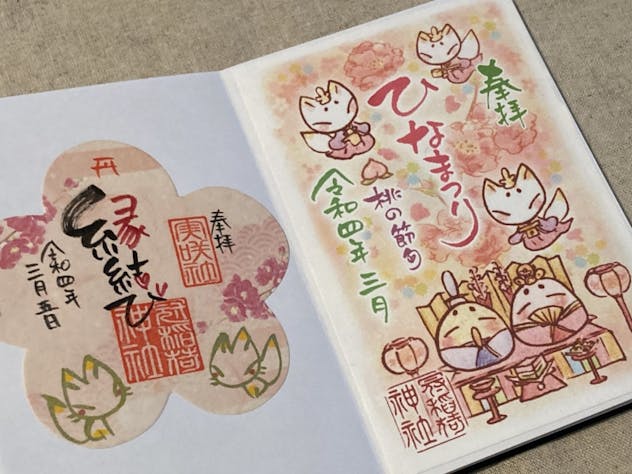 奉拝
ひなまつり
桃の節句
令和四年三月
冠稲荷
神社
奉拝
実咲社
縁結び
冠稲荷
神社
令和四年
三月五日